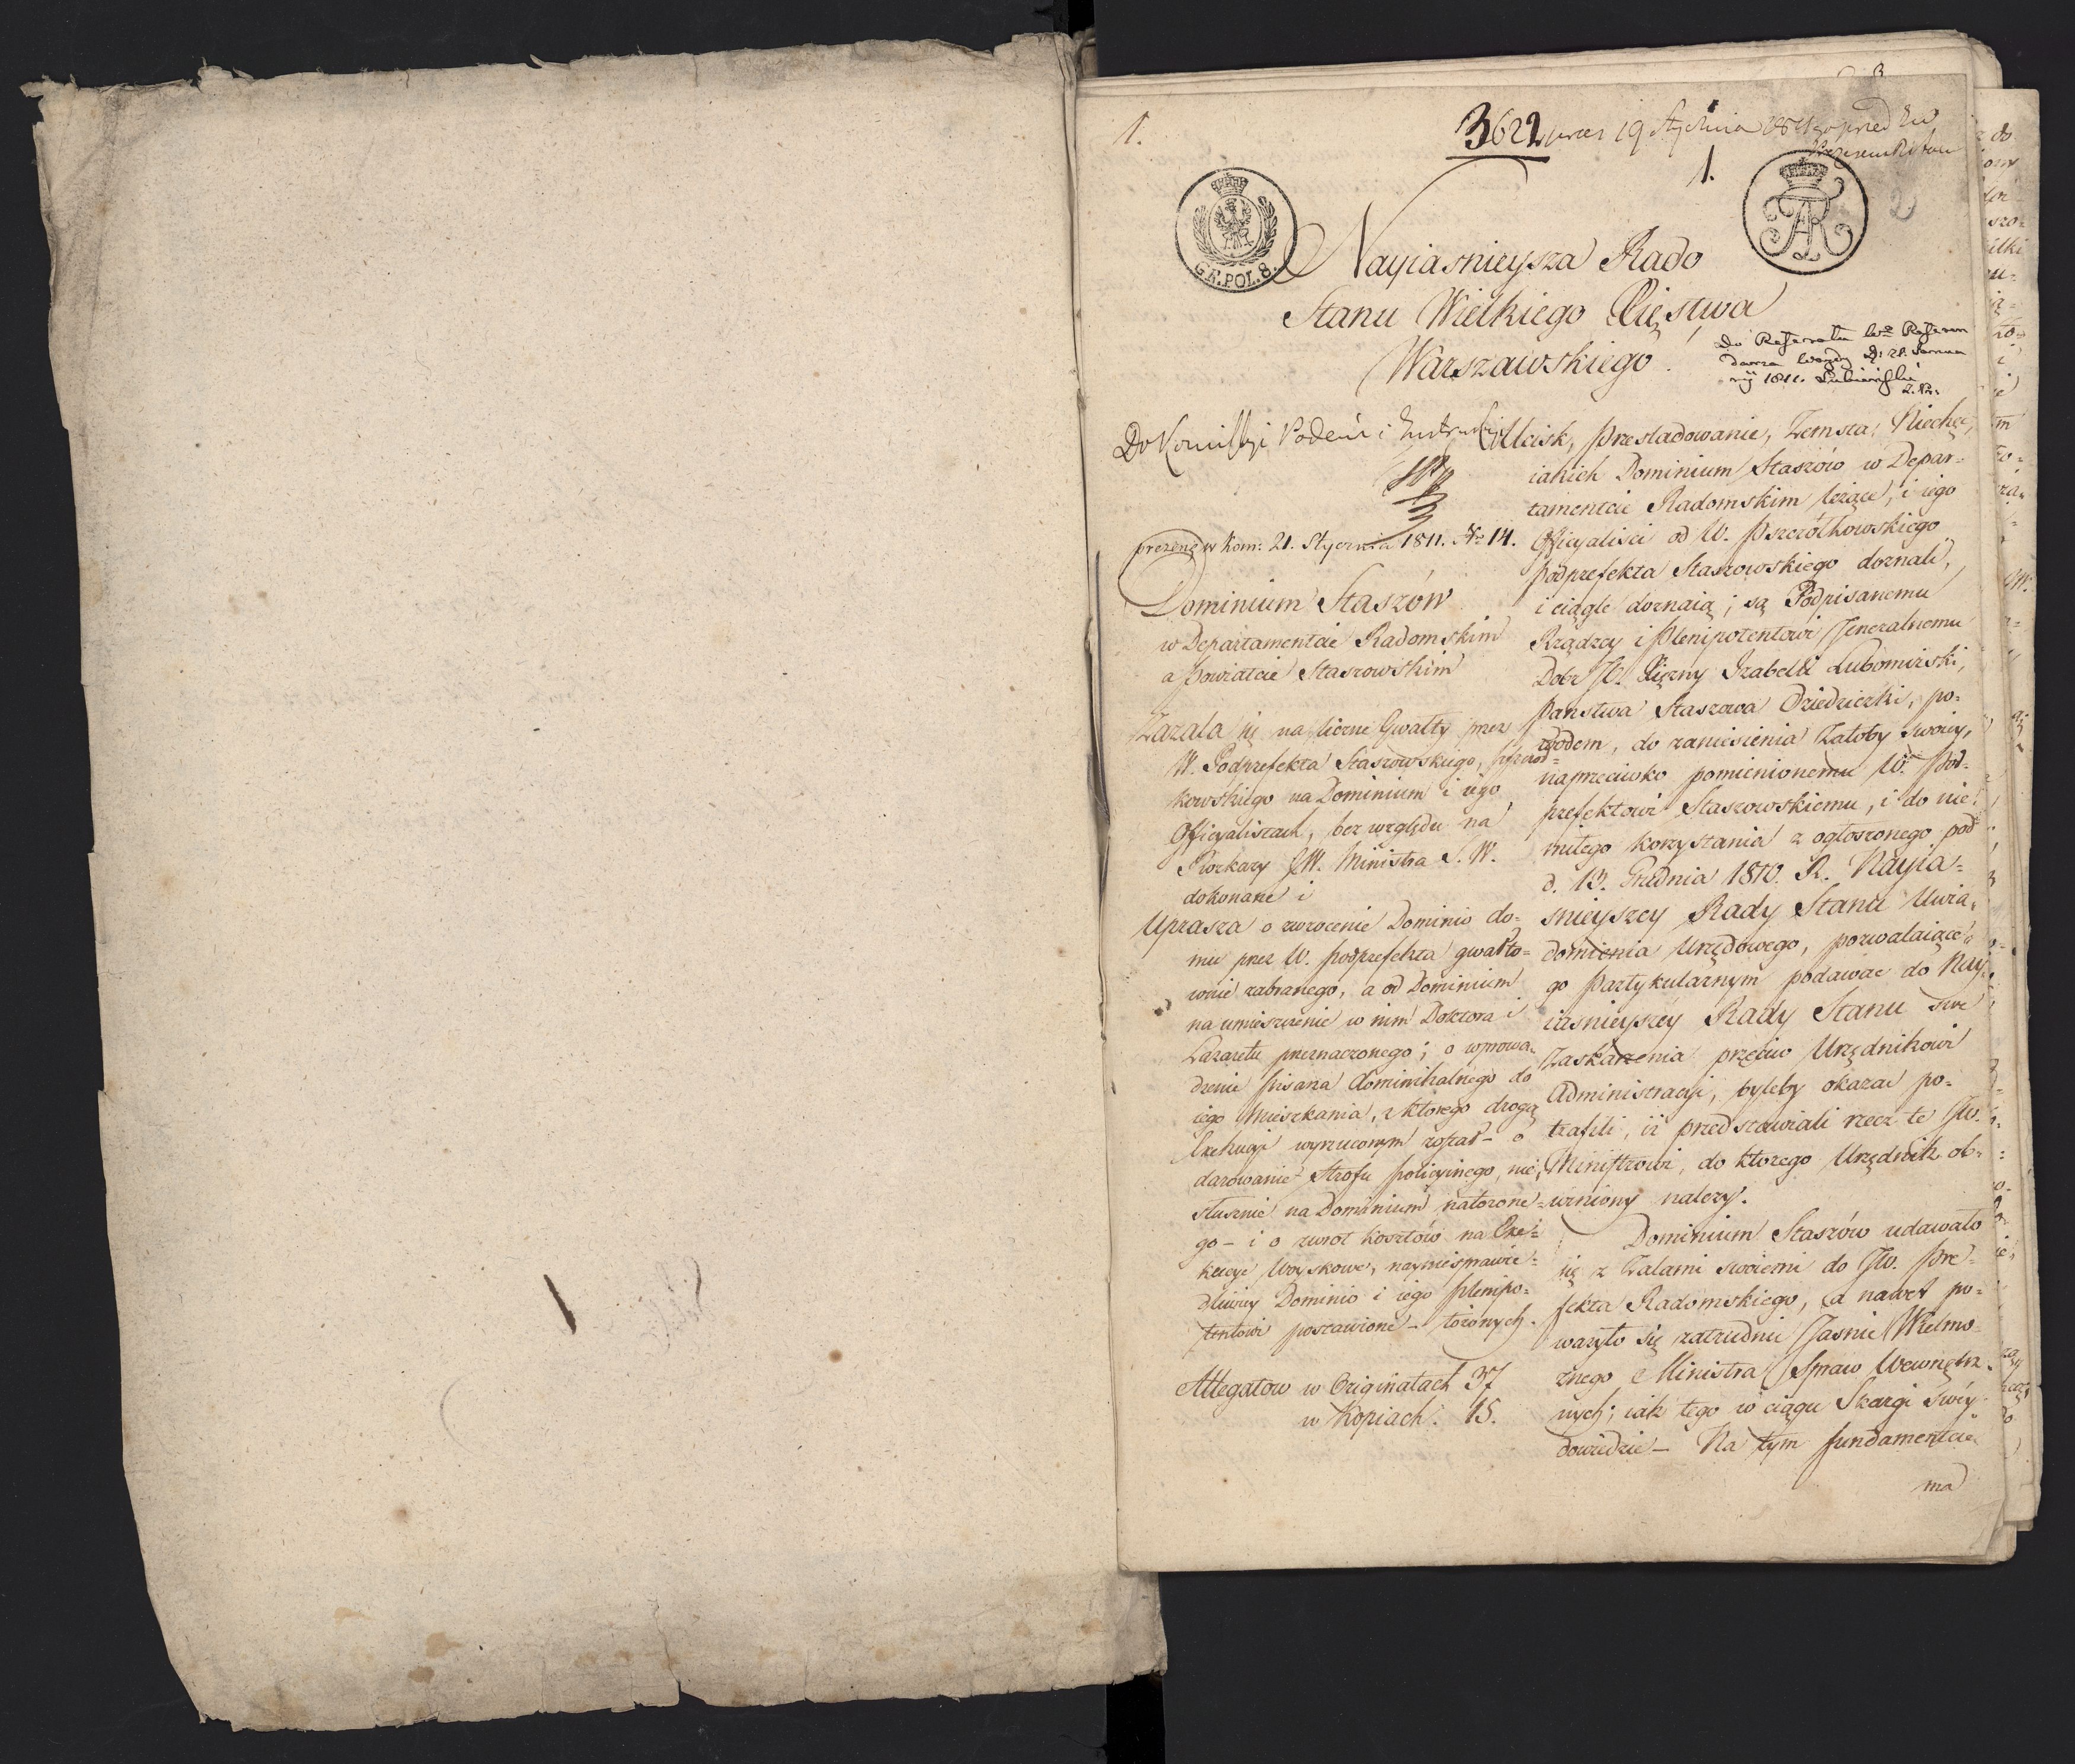 1.
3622
19 Stycznia
1.
2
G.R.POL.8.
Nayiasnieysza Rado
Stanu Wielkiego Xięstwa
Warszawskiego!
Do Referatu
1811. Lubieński
Do Kommissyi Podań i Instrukcyi
prezens w Kom: 21. Stycznia 1811. No 14.
Dominium Staszów
w Departamencie Radomskim
a Powiatcie Staszowskim
Zazala się na liczne Gwałty przez
W. Podprefekta Staszowskiego, Pszczoł-
kowskiego na Dominium i iego
Officyalistach, bez względu na
Rozkazy JW. Ministra S. W.
dokonane i
Uprasza o zwrocenie Dominio do-
mu przez W. Podprefekta gwałto-
wnie zabranego, a od Dominium
na umieszczenie w nim Doktora i
Lazaretu przeznaczonego; o wprowa-
dzenie Pisarza dominikalnego do
iego Mieszkania, z ktorego drogą
Exekucyi wyrzuconym został - o
darowanie Strofu policyinego, nie-
słusznie na Dominium nałozone-
go - i o zwrot kosztów na Exe-
kucye Woyskowe, nayniesprawie-
dliwiey Dominio i iego Plenipo-
tentowi postawione - łożonych.
Allegatow w Originałach 37
w Kopiach: 15.
Ucisk, Presladowanie, Zemsta, Niechęć,
iakich Dominium Staszów w Depar-
tamencie Radomskim leżące, i iego
Officyaliści od W. Pszczółkowskiego
Podprefekta Staszowskiego doznali,
i ciągle doznaią; są Podpisanemu
Rządzcy i Plenipotentowi Jeneralnemu
Dobr JO. Xiężny Izabelli Lubomirski,
Państwa Staszowa Dziedziczki, po-
wodem, do zaniesienia Załoby swoiey,
naprzeciwko pomienionemu W. Pod-
prefektowi Staszowskiemu, i do nie-
miłego korzystania z ogłoszonego pod
d. 13. Grudnia 1810. R. Nayia-
snieyszey Rady Stanu Uwia-
domienia Urzędowego, pozwalaiące-
go Partykularnym podawac do Nay-
iasnieyszey Rady Stanu swe
Zaskarzenia przeciw Urzędnikowi
Administracyi, byleby okazać po-
trafili, iż przedstawiali rzecz tę JW.
Ministrowi, do ktorego Urzędnik ob-
winiony nalezy.
Dominium Staszów udawało
się z Zalami swoiemi do JW. Pre-
fekta Radomskiego, a nawet po-
wazyło się zatrudnić Jasnie Wielmo-
znego Ministra Spraw Wewnętrz-
nych; iak tego w ciągu Skargi swéy
dowiedzie - Na tym fundamencie
ma